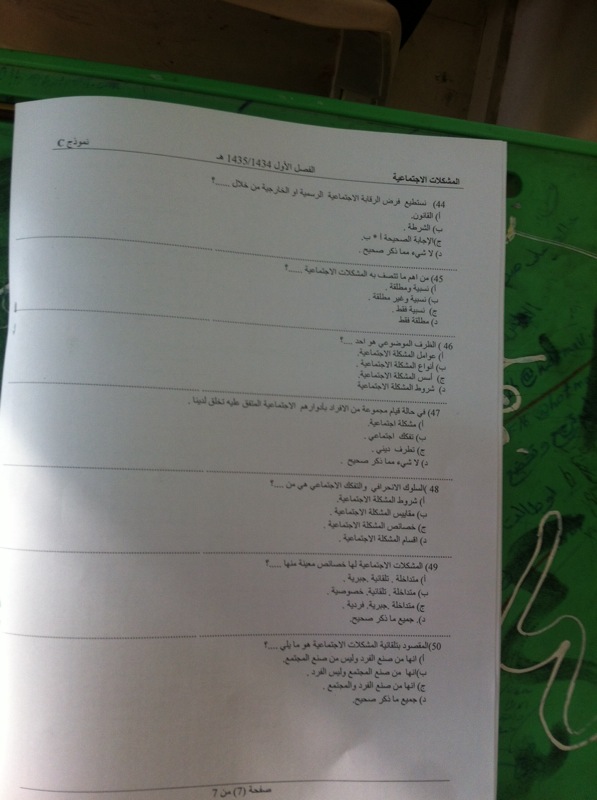 المشكلات الاجتماعية الفصل الأول 1435/1434 هـ نموذج C
44) نستطيع فرض الرقابة الاجتماعية الرسمية او الخارجية من خلال ......؟
أ) القانون.
ب) الشرطة .
ج)الإجابة الصحيحة أ + ب.
د) لا شيء مما ذكر صحيح .
45) من اهم ما تتصف به المشكلات الاجتماعية .....؟
أ) نسبية ومطلقة .
ب) نسبية وغير مطلقة .
ج) نسبية فقط .
د) مطلقة فقط
46 ) الظرف الموضوعي هو احد ....؟
أ) عوامل المشكلة الاجتماعية.
ب) أنواع المشكلة الاجتماعية .
ج) أسس المشكلة الاجتماعية.
د) شروط المشكلة الاجتماعية
47) في حالة قيام مجموعة من الافراد بأدوارهم الاجتماعية المتفق عليه تخلق لدينا .
أ) مشكلة اجتماعية.
ب) تفكك اجتماعي .
ج) تطرف ديني .
د) لا شيء مما ذكر صحيح .
48 )السلوك الانحرافي والتفكك الاجتماعي هي من ....؟
أ) شروط المشكلة الاجتماعية.
ب) مقاييس المشكلة الاجتماعية .
ج) خصائص المشكلة الاجتماعية .
د) اقسام المشكلة الاجتماعية .
49) المشكلات الاجتماعية لها خصائص معينة منها .....؟
أ) متداخلة . تلقائية .جبرية .
ب) متداخلة . تلقائية. خصوصية .
ج) متداخلة .جبرية. فردية .
د). جميع ما ذكر صحيح.
50)المقصود بتلقائية المشكلات الاجتماعية هو ما يلي ....؟
أ) انها من صنع الفرد وليس من صنع المجتمع.
ب)انها من صنع المجتمع وليس الفرد .
ج) انها من صنع الفرد والمجتمع .
د) جميع ما ذكر صحيح.
صفحة (7) من 7